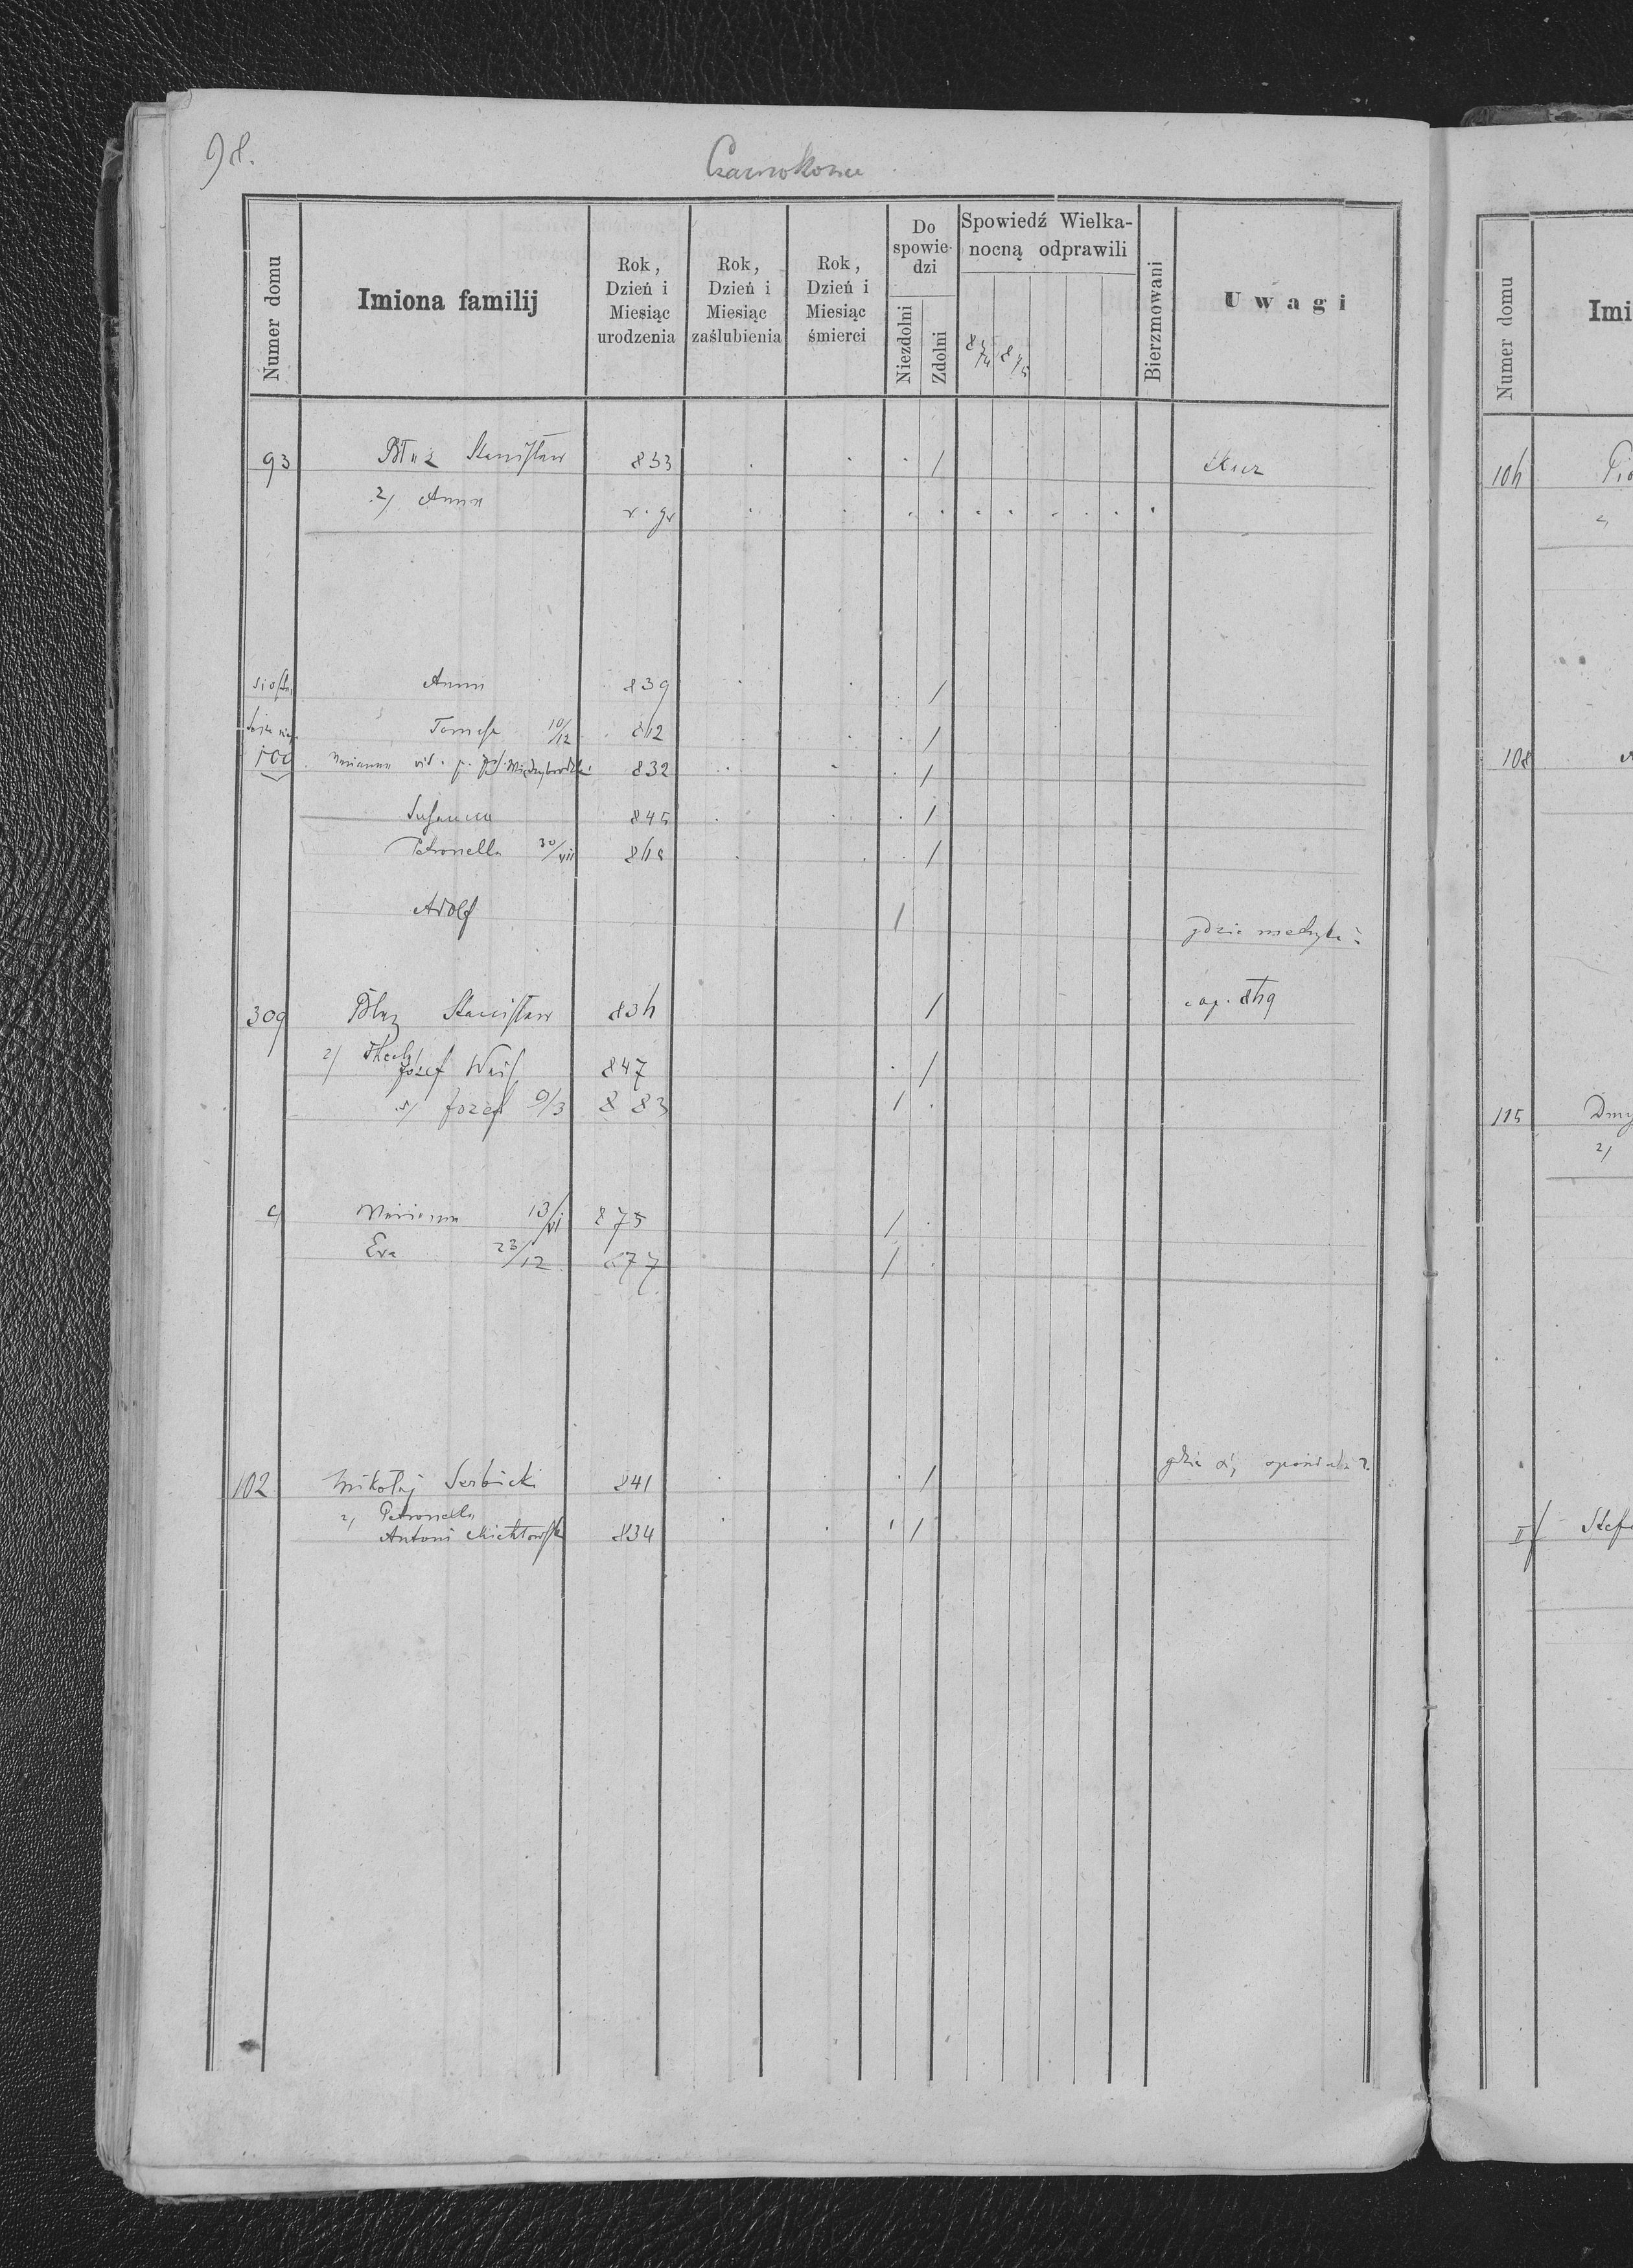 98.
Czarnokońce
Numer domu
Imiona familij
Rok, Dzień i Miesiąc urodzenia
Rok, Dzień i Miesiąc zaślubienia
Rok, Dzień i Miesiąc śmierci
Do spowiedzi
Niezdolni
Zdolni
Spowiedź Wielkanocną odprawili
874 875
Bierzmowani
Uwagi
93 Błaż Stanisław 833 /
2/ Anna r. gr
siostra Anna 839 /
Tomasz 10/12 842 /
Marianna vid. p. 832 /
Susanna 845 /
Petronella 30/VII /
Adolf / gdzie metryka?
309 Błaz Stanisław 834 /
2/ Thecla
Józef 847 /
s/ Józef 9/3 883 /
c/ Marianna 13/VI 875 /
Eva 23/12 877 /
102 Mikołaj Serbicki 841 / gdzie się
2/ Petronella
Antoni 834 /
Numer domu
Imi
104
108
115 Dmy
2/
II/ Stef